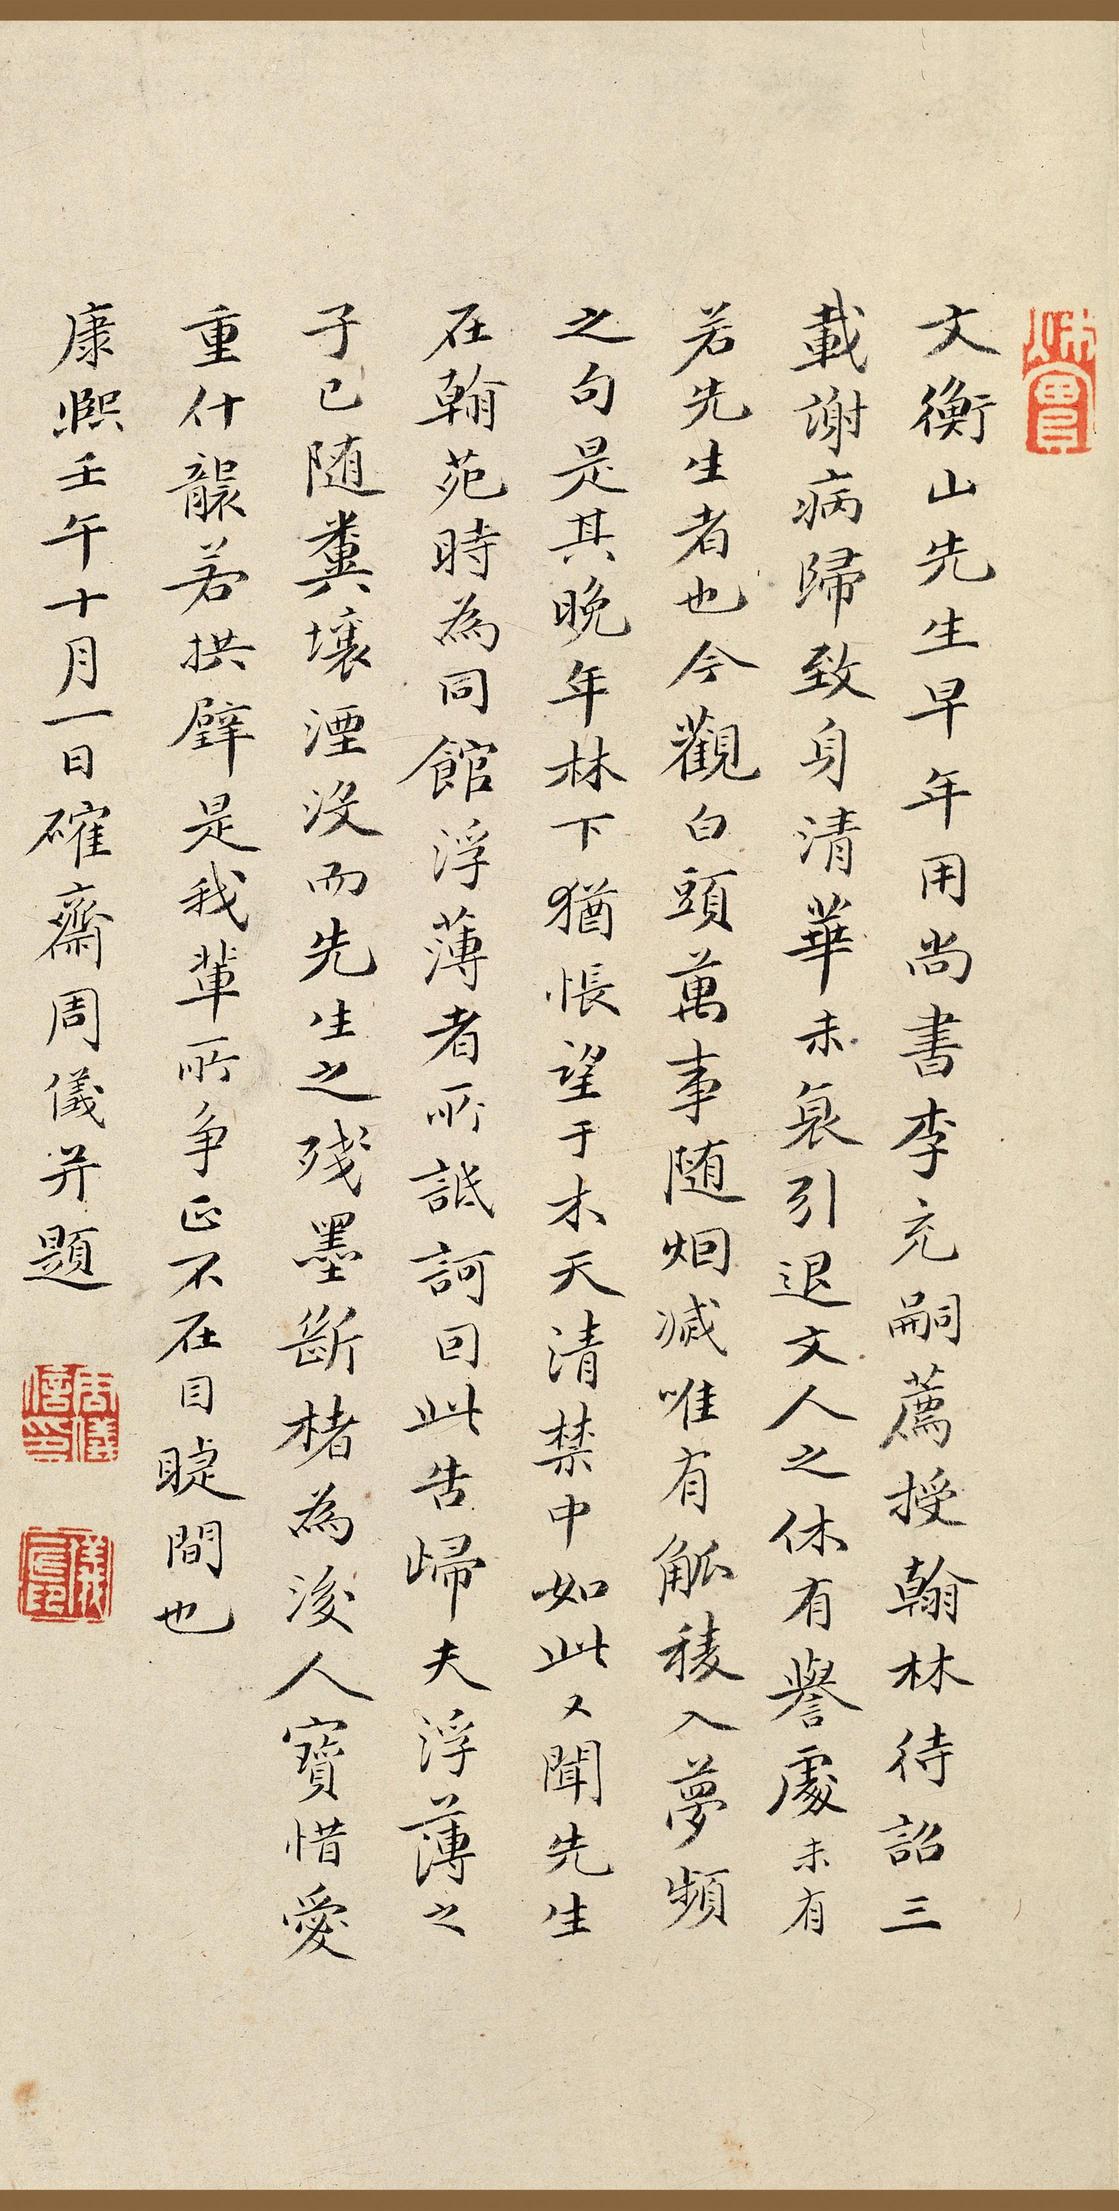 文衡山先生早年用尚書李充嗣薦授翰林待詔三
載謝病歸致身清華未衰引退文人之休有譽處未有
若先生者也今觀白頭萬事随烟滅唯有觚稜入夢頻
之句是其晩年林下猶悵望于木天清禁中如此又聞先生
在翰苑時為同館浮薄者所詆訶回此告歸夫浮薄之
子已随糞壤湮没而先生之殘墨斷楮為後人寶惜愛
重什襲若拱璧是我輩所争正不在目睫間也
康熙壬午十月一日確齋周儀并題
周儀